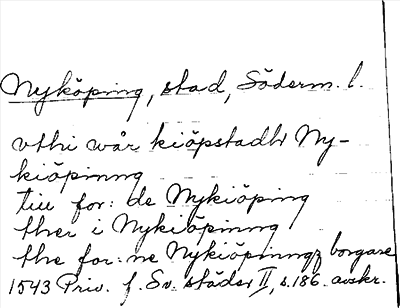 Nyköping, stad, Söderm. l.
vthi wår kiöpstadh Ny-
kiöpinng
till for: de Nykiöping
ther i Nykiöpinng
the for: ne Nykiöpinngz borgare
1543 Priv. f. Sv. städer II, s. 186. avskr.